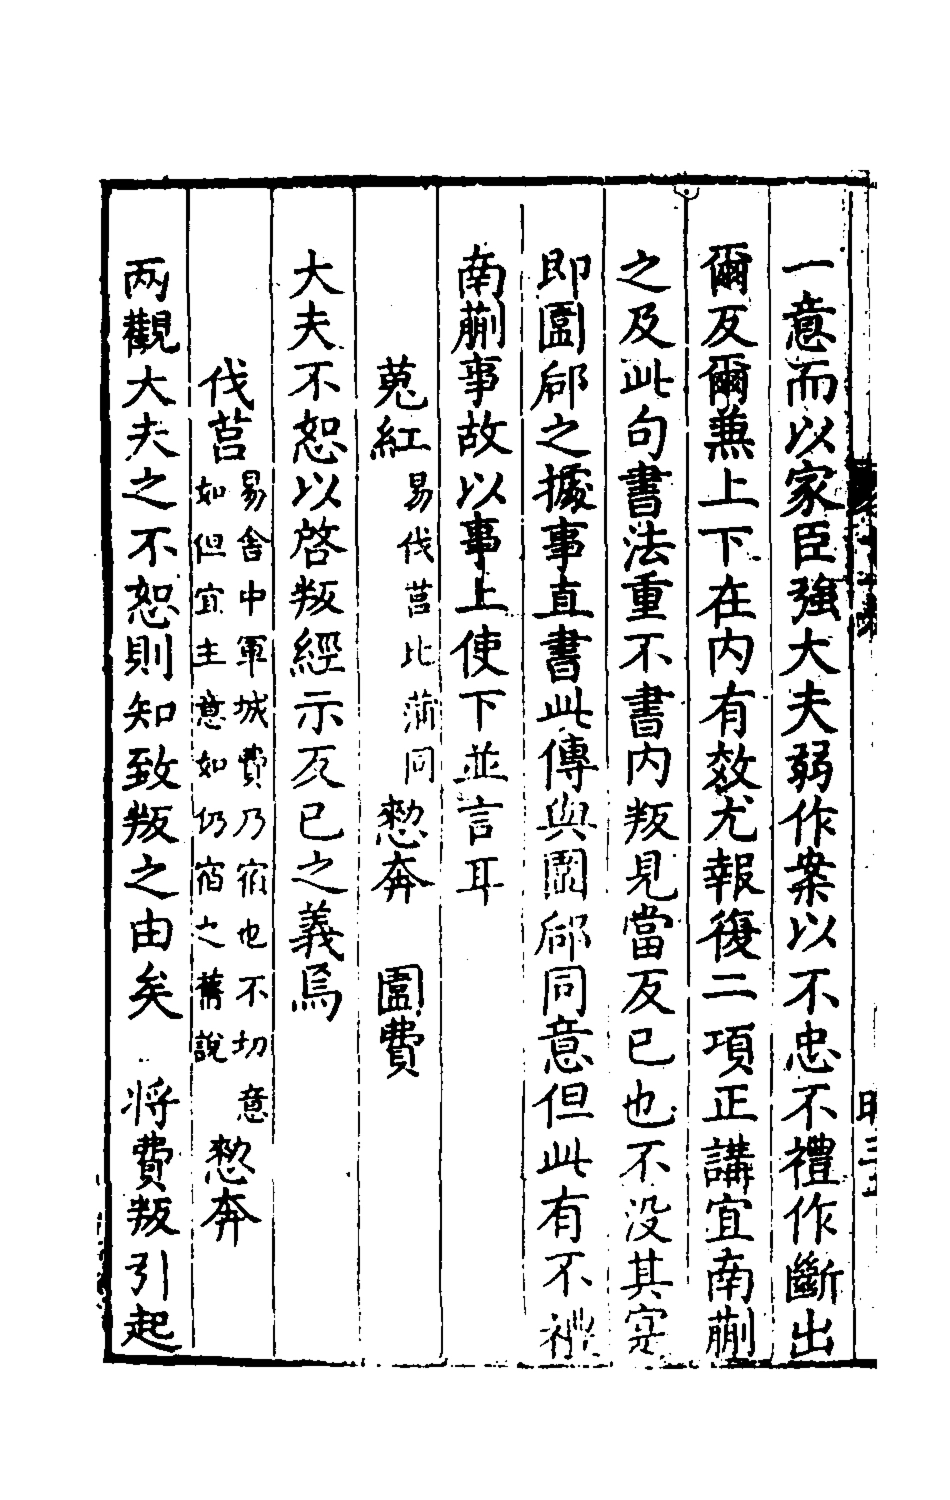 一意而以家臣強大夫弱作案以不忠不禮作斷出
爾反爾兼上下在內有效尤報復二項正講宜南蒯
之及此句書法重不書內叛見當反已也不没其寔
即圍郈之據事直書此傳與圍郈同意但此有不禮
南蒯事故以事上使下並言耳
蒐紅 易伐莒比蒲同 憖奔 圍費
大夫不恕以啓叛經示反已之義焉
伐莒 易舍中軍城費乃宿也不切意如但宜主意如仍宿之舊說 憖奔
兩觀大夫之不恕則知致叛之由矣 将費叛引起